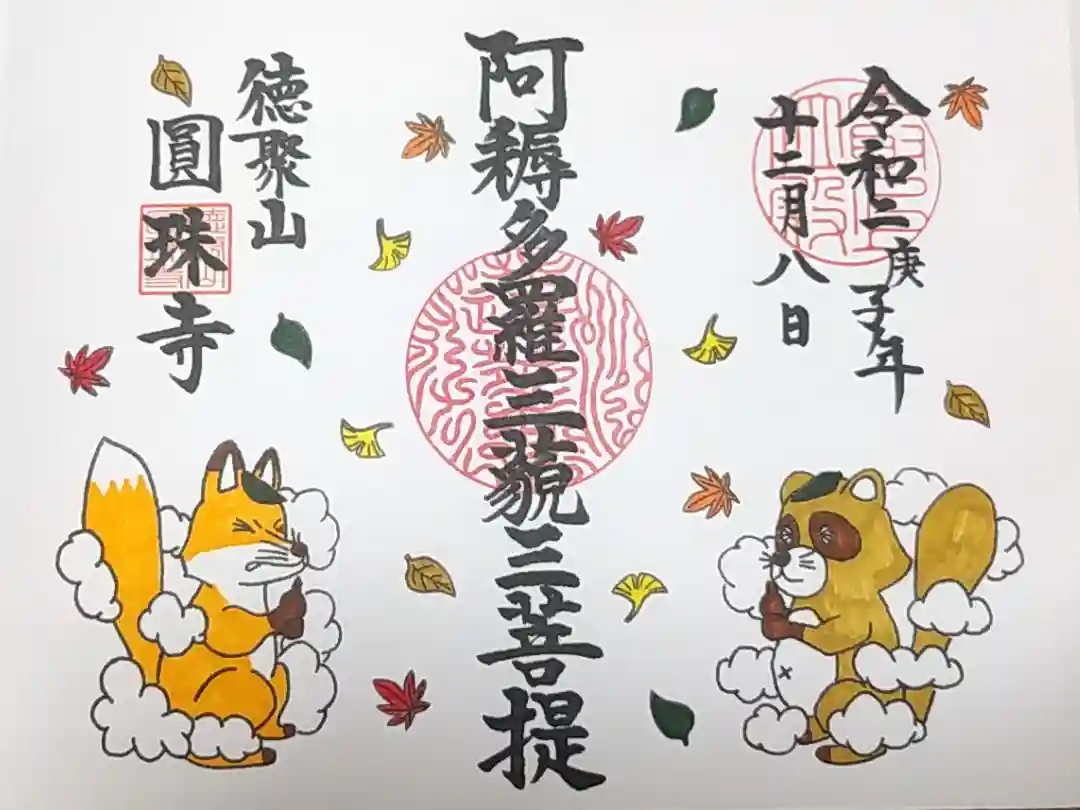 令和二庚子年
十二月八日
阿耨多羅三藐三菩提
徳聚山
圓珠寺